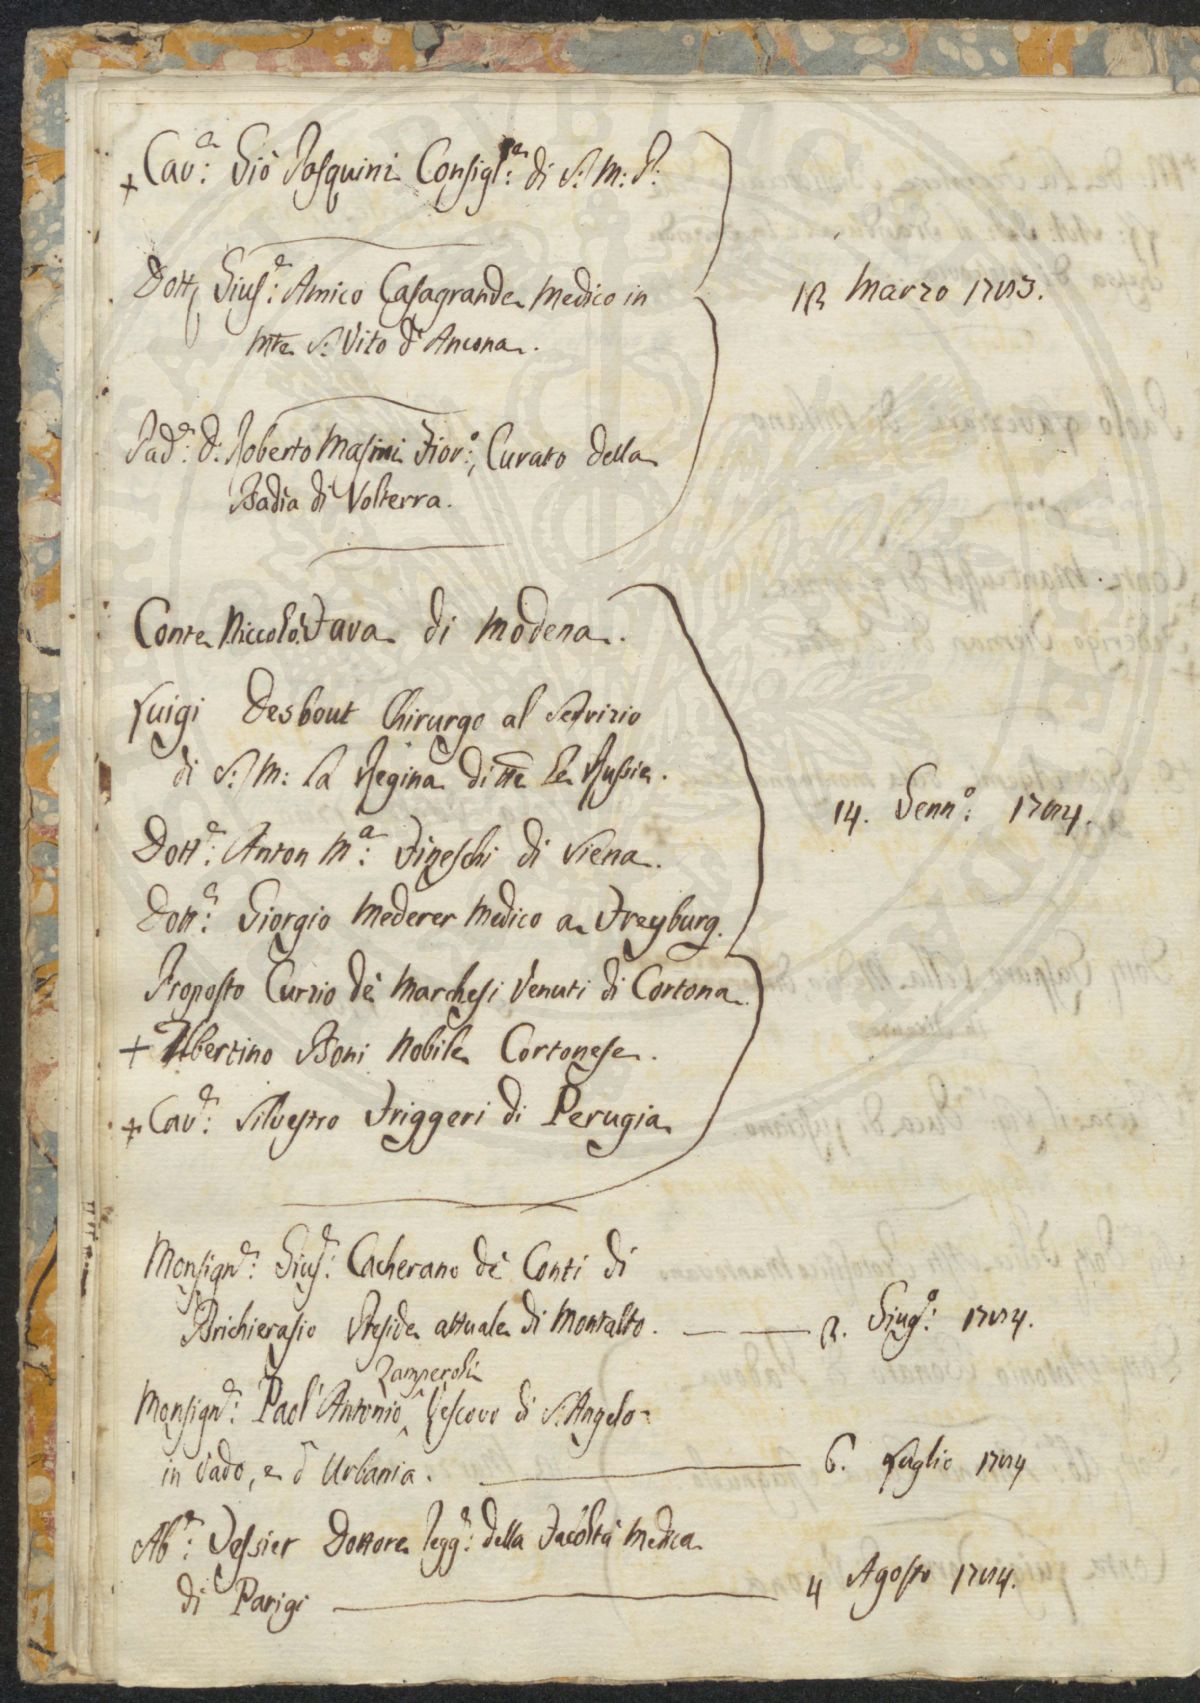 + Cav.e: Gio Pasquini Consigl.re: di S: M: P:
Dott. Gius.e: Amico Casagrande Medico in
Mte S: Vito d'Ancona.
12 Marzo 1783.
Pad.e: D: Roberto Masini Fior.o:, Curato della
Badia di Volterra.
Conte Niccolò Fava di Modena.
Luigi Desbout Chirurgo al Servizio
di S: M: la Regina di tte le Russie.
14. Genn.o: 1784.
Dott.e: Anton M.a: Fineschi di Siena.
Dott.e: Giorgio Mederer Medico a Freyburg.
Proposto Curzio de' Marchesi Venuti di Cortona
+ Ubertino Boni Nobile Cortonese.
+ Cav.e: Silvestro Friggeri di Perugia
Monsign.e: Gius.e: Cacherano de' Conti di
Bricherasio Preside attuale di Montalto. — — 2. Giug.o: 1784.
Zamperoli
Monsign.e: Paol'Antonio ^ Vescovo di S: Angelo
in Vado, e d'Urbania. — 6. Luglio 1784
Ab.e: Tessier Dottore Regg.e: della Facoltà Medica
di Parigi — 4 Agosto 1784.